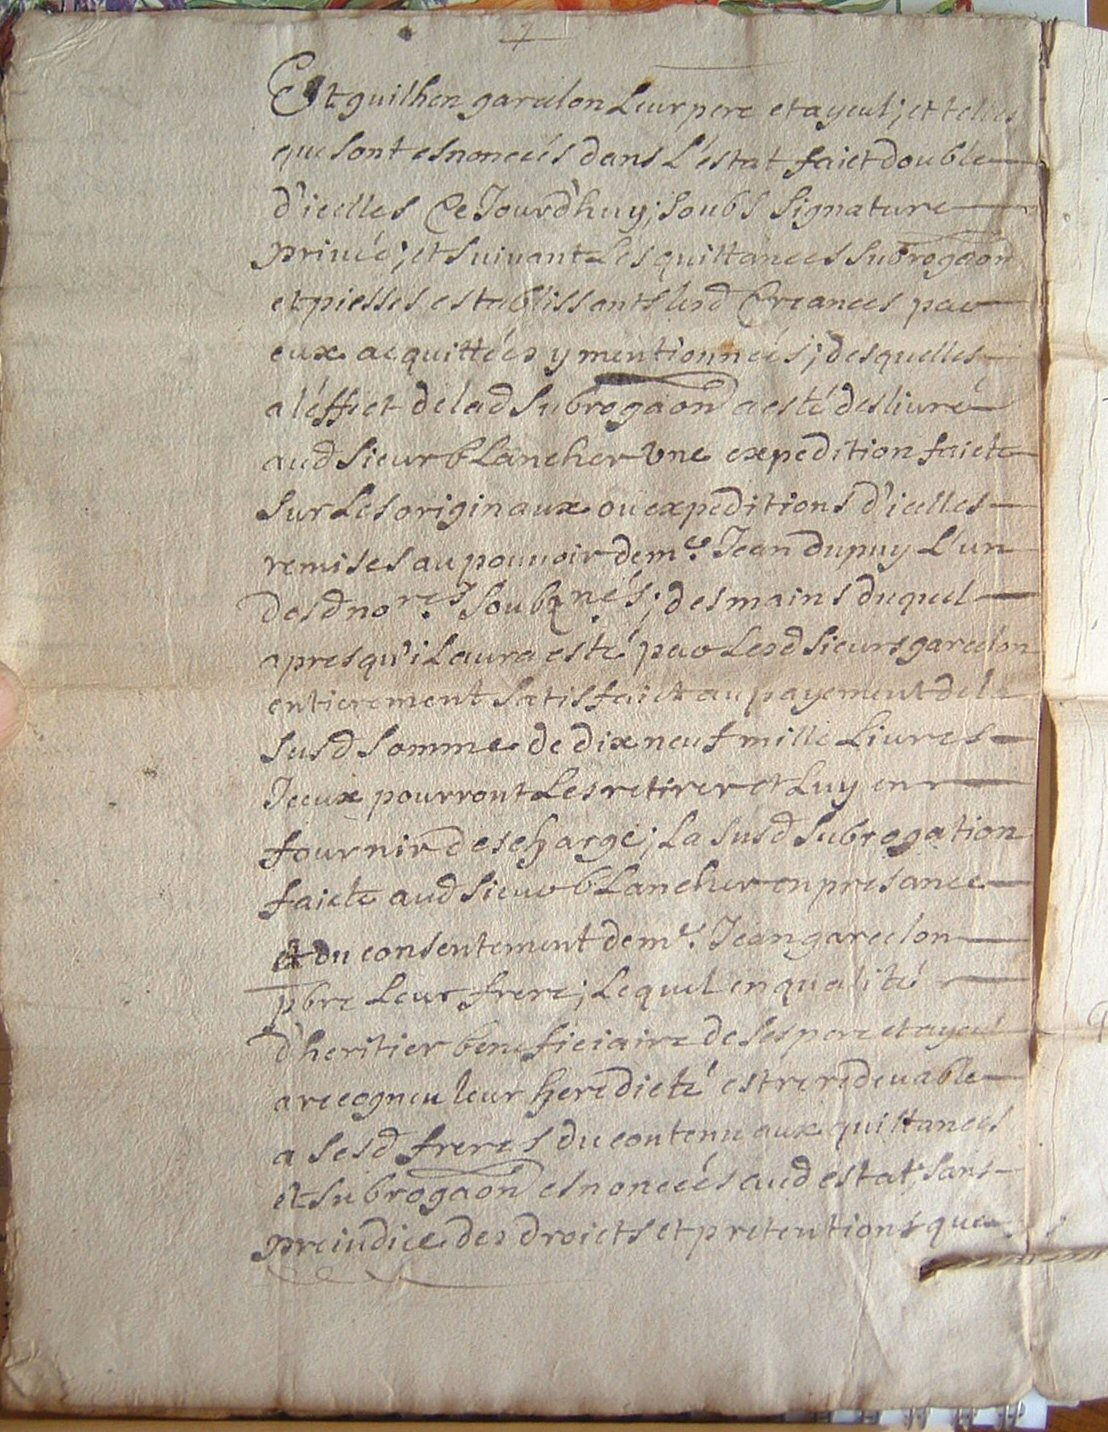 Et guilhen garcelon Leur pere et ayeul; et telles
que sont esnoncées dans L'éstat faict double
d'icelles Ce Jourd'huy; soubs signature
privée; et suivant Les quittances subrogaõn
et piesses establissants lesd Creances par
eux acquittées y mentionnées; desquelles
a léffict de lad subrogaõn a esté deslivré
aud sieur bLancher Une expedition faicte
sur Les originaux ou expeditions d'icelles
remises au pouvoir de me. Jean dupuy L'un
desd nores soubznés; des mains duquel
apres qu'iL aura esté par Lesd sieurs garcelon
entierement satisfaict au payement de la
susd somme de dix neuf mille Livres
Iceux pourront Les retirer et Luy en
fournir descharge; La susd subrogation
faicte aud sieur bLancher en presance
et du consentement de me. Jean garcelon
pbre Leur frere; Lequel en qualité
d'heritier beneficiaire de ses pere et ayeul
a recogneu leur heredicté estre redevable
a sesd freres du contenu aux quittances
et subrogaõn esnoncées aud estat, sans
preiudice des droicts et pretentions que